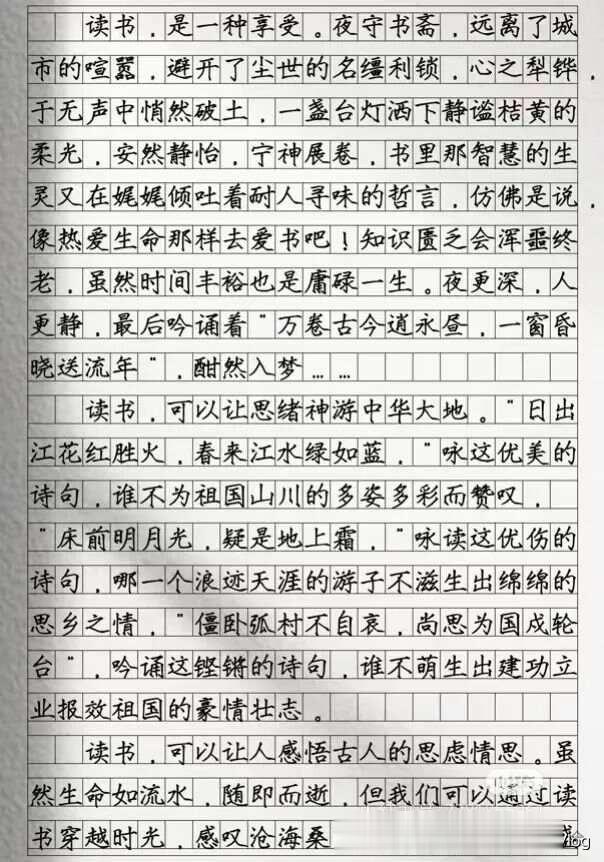 读书，是一种享受。夜守书斋，远离了城
市的喧嚣，避开了尘世的名缰利锁，心之犁铧，
于无声中悄然破土，一盏台灯洒下静谧桔黄的
柔光，安然静怡，宁神展卷，书里那智慧的生
灵又在娓娓倾吐着耐人寻味的哲言，仿佛是说，
像热爱生命那样去爱书吧！知识匮乏会浑噩终
老，虽然时间丰裕也是庸碌一生。夜更深，人
更静，最后吟诵着"万卷古今逍永昼，一窗昏
晓送流年"，酣然入梦……
读书，可以让思绪神游中华大地。"日出
江花红胜火，春来江水绿如蓝，"咏这优美的
诗句，谁不为祖国山川的多姿多彩而赞叹，
"床前明月光，疑是地上霜，"咏读这优伤的
诗句，哪一个浪迹天涯的游子不滋生出绵绵的
思乡之情，"僵卧弧村不自哀，尚思为国戍轮
台"，吟诵这铿锵的诗句，谁不萌生出建功立
业报效祖国的豪情壮志。
读书，可以让人感悟古人的思虑情思。虽
然生命如流水，随即而逝，但我们可以通过读
书穿越时光，感叹沧海桑
log